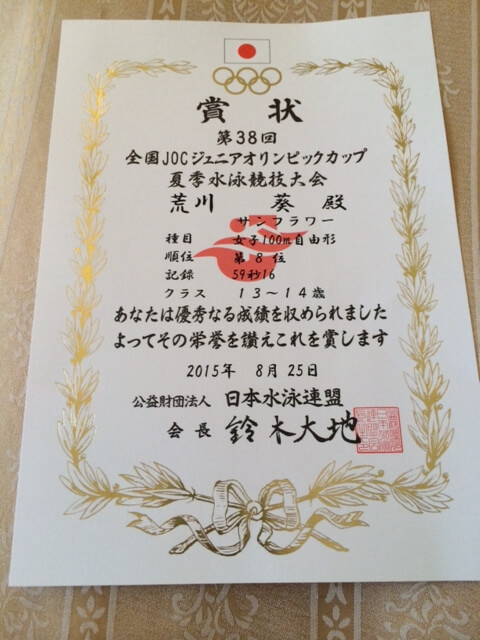 賞状
第38回
全国JOCジュニアオリンピックカップ
夏季水泳競技大会
荒川 葵 殿
サンフラワー
種目 女子100m自由形
順位 第8位
記録 59秒16
クラス 13~14歳
あなたは優秀なる成績を収められました
よってその栄誉を讃えこれを賞します
2015年 8月25日
公益財団法人 日本水泳連盟
会長 鈴木大地